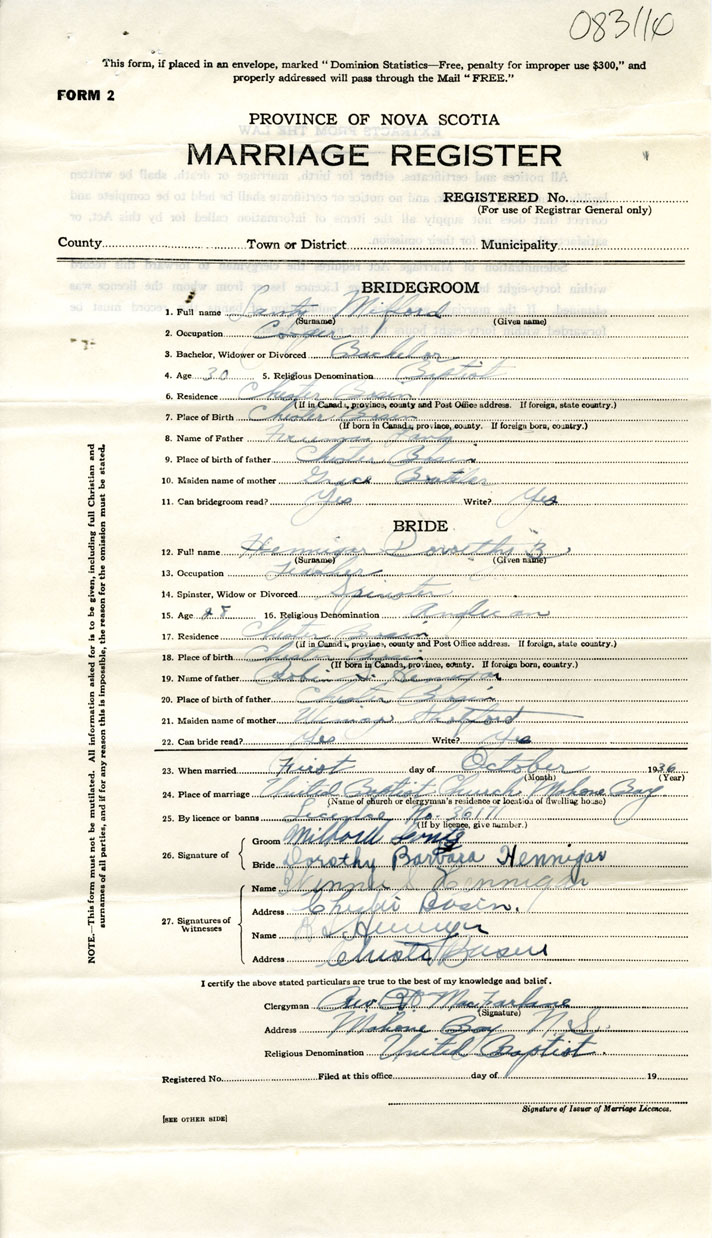 083110
This form, if placed in an envelope, marked "Dominion Statistics—Free, penalty for improper use $300," and
properly addressed will pass through the Mail "FREE."
FORM 2
PROVINCE OF NOVA SCOTIA
MARRIAGE REGISTER
REGISTERED No.
(For use of Registrar General only)
County Town or District Municipality
BRIDEGROOM
1. Full name Milford
(Surname) (Given name)
2. Occupation Cooper
3. Bachelor, Widower or Divorced Bachelor
4. Age 30 5. Religious Denomination Baptist
6. Residence Chester Basin
(If in Canada, province, county and Post Office address. If foreign, state country.)
7. Place of Birth Chester Basin
(If born in Canada, province, county. If foreign born, country.)
8. Name of Father Freeman
9. Place of birth of father Chester Basin
10. Maiden name of mother Grace
11. Can bridegroom read? Yes Write? Yes
BRIDE
12. Full name Hennigar Dorothy B
(Surname) (Given name)
13. Occupation Teacher
14. Spinster, Widow or Divorced Spinster
15. Age 28 16. Religious Denomination Anglican
17. Residence Chester Basin
(if in Canada, province, county and Post Office address. If foreign, state country.)
18. Place of birth Chester Basin
(If born in Canada, province, county. If foreign born, country.)
19. Name of father Robie Hennigar
20. Place of birth of father Chester Basin
21. Maiden name of mother
22. Can bride read? Yes Write? Yes
23. When married First day of October 1936
(Month) (Year)
24. Place of marriage United Baptist Church Mahone Bay
(Name of church or clergyman's residence or location of dwelling house)
25. By licence or banns Licence No. 36171
(If by licence, give number.)
26. Signature of
Groom Milford
Bride Dorothy Barbara Hennigar
27. Signatures of Witnesses
Name Hennigar
Address Chester Basin.
Name Hennigar
Address Chester Basin
I certify the above stated particulars are true to the best of my knowledge and belief.
Clergyman Rev. MacFarlane
(Signature)
Address Mahone Bay N.S.
Religious Denomination United Baptist.
Registered No. Filed at this office day of 19
Signature of Issuer of Marriage Licences.
[SEE OTHER SIDE]
NOTE.—This form must not be mutilated. All information asked for is to be given, including full Christian and
surnames of all parties, and if for any reason this is impossible, the reason for the omission must be stated.